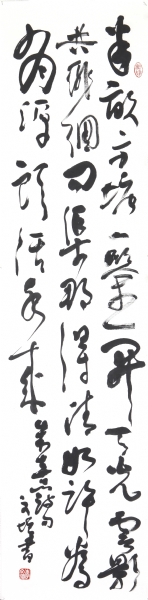 半畝方塘一鑒開天光雲影
共徘徊問渠那得清如許為
有源頭活水來
朱熹詩句
書